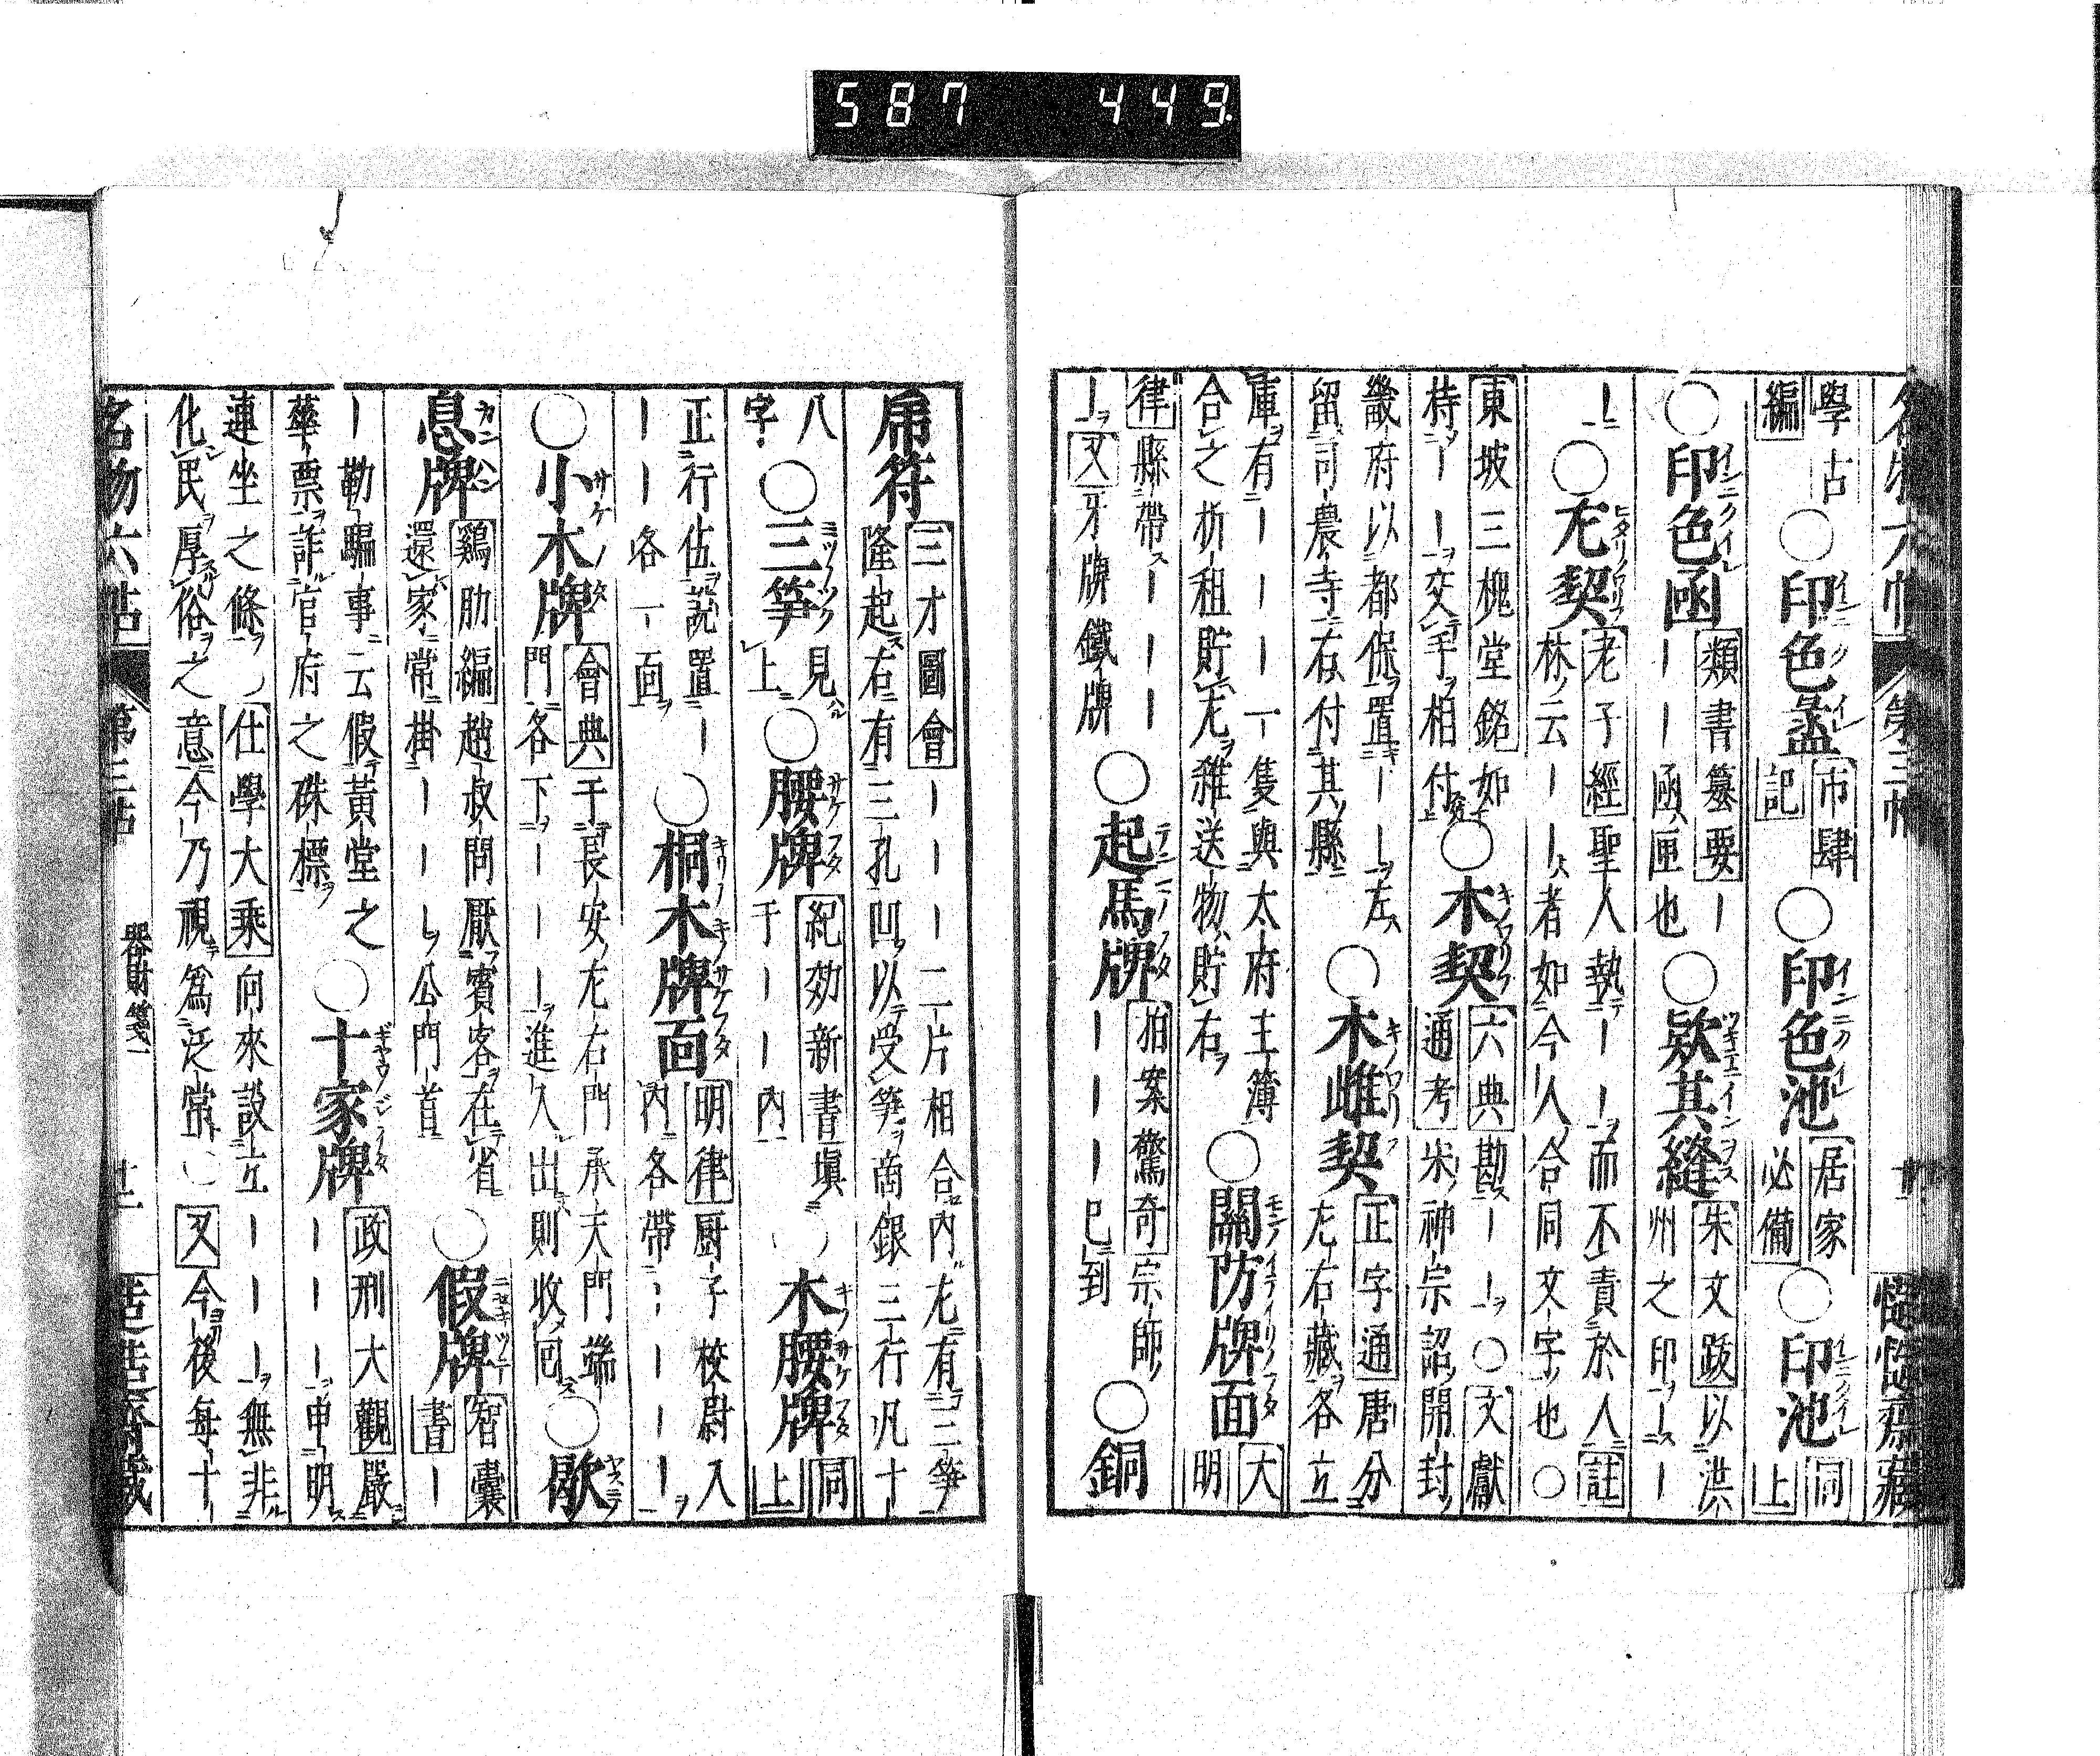 587 449
名物六帖 第三帖
學古
編
○印色盝
市肆
記
○印色池
居家
必備
○印池
同
上
○印色函
類書纂要｜
｜｜函匣也
○欵其縫
朱文跋以洪
州之印｜｜
｜
○左契
老子經聖人執｜｜而不責於人註
林云｜｜者如今人合同文字也○
東坡三槐堂銘如
持｜｜交手相付
○木契
六典勘｜｜○文獻
通考宋神宗詔開封
畿府以都保置｜｜左
留司農寺右付其縣
○木雌契
正字通唐分
左右藏各立
庫有｜｜｜一隻與太府主簿
合之折租貯左雜送物貯右
○關防牌面
大
明
律縣帶｜｜｜
｜又牙牌鐵牌
○起馬牌
拍案驚奇宗師
｜｜｜已到
○銅
帍符
三才圖會｜｜二片相合内左有三筝
隆起右有三孔凹以受筝商銀三行凡十
八
字
○三筝
見
上
○腰牌
紀効新書塡
于｜｜内
○木腰牌
同
上
正行伍説置｜
｜｜各一面
○桐木牌面
明律厨子校尉入
内各帶｜｜｜｜
○小木牌
會典于長安左右門承天門端
門各下｜｜｜進入出則收回
○歇
息牌
鷄肋編趙叔問厭賓客在省
還家常掛｜｜｜公門首
○假牌
智囊
書｜
｜勒騙事云假黃堂之
華票詐官府之硃標
○十家牌
政刑大觀嚴
｜｜｜申明
連坐之條 仕學大乘向來設立｜｜｜無非
化民厚俗之意今乃視爲泛常○又今後每十
名物六帖 第三帖 器財箋一 廿二